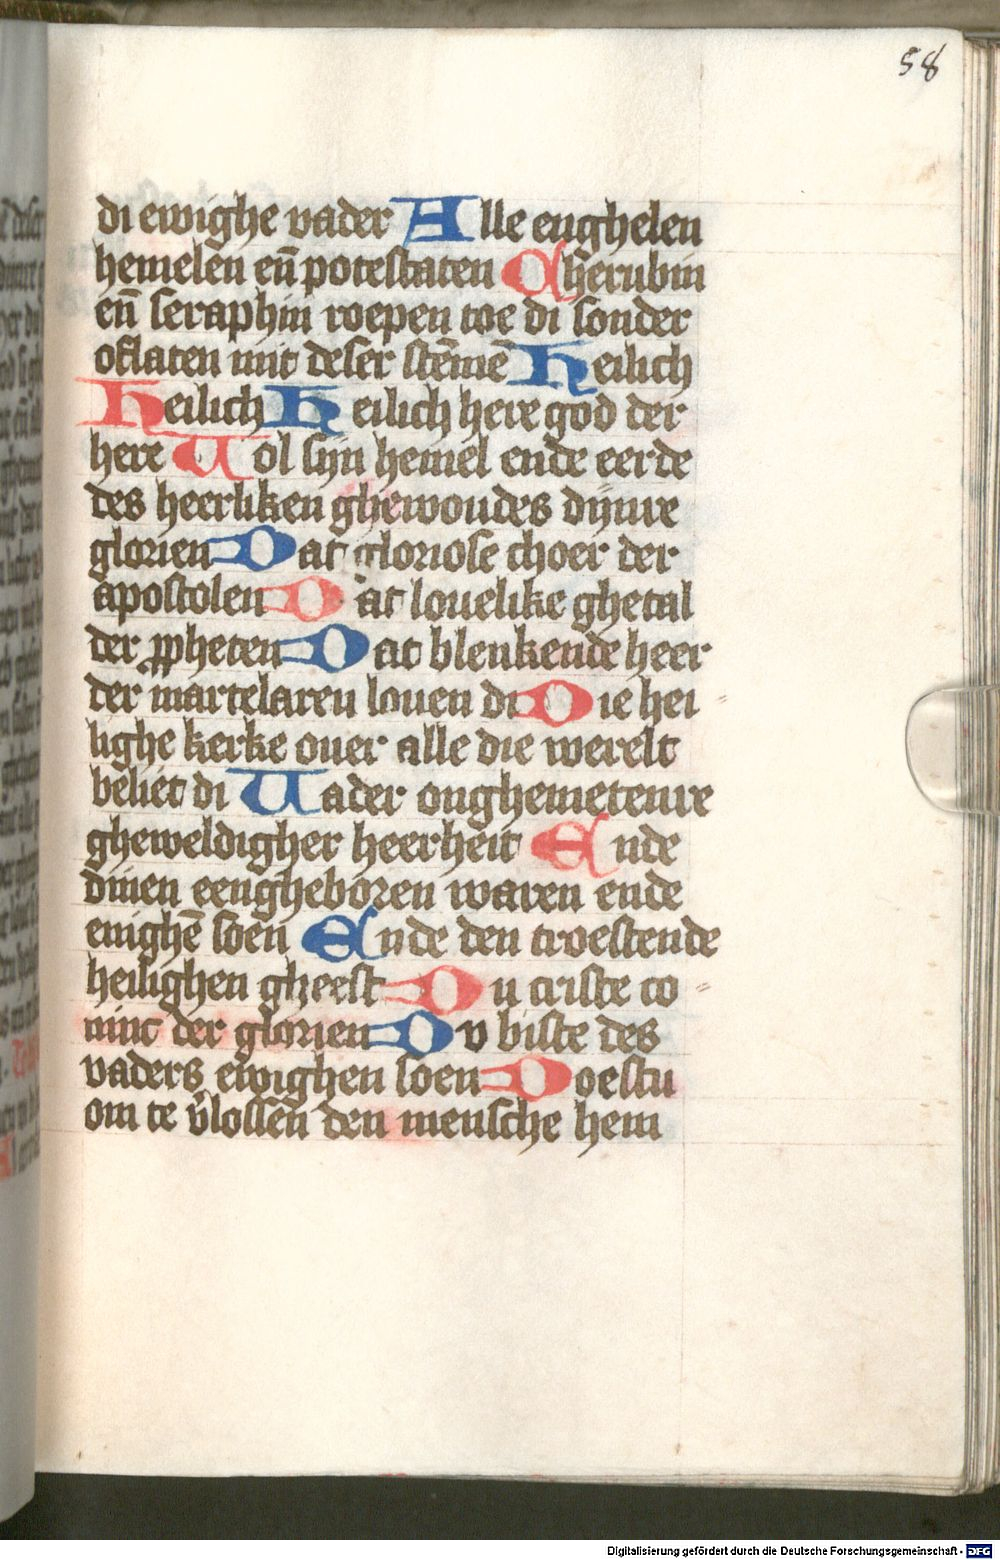 58
di ewighe vader Alle enghelen
hemelen en̄ potestaten Cherubin
en̄ seraphin roepen toe di sonder
oflaten mit deser stēme Heilich
Heilich Heilich here god der
here Uol sijn hemel ende eerde
des heerliken ghewoudes dijnre
glorien Dat gloriose choer der
apostolen Dat louelike ghetal
der ꝓpheten Dat blenkende heer
der martelaren louen di Die hei
lighe kerke ouer alle die werelt
beliet di Uader onghemetenre
gheweldigher heerheit Ende
dinen eengheboren waren ende
enighē soen Ende den troestende
heilighen gheest Du criste co
ninc der glorien Dv biste des
vaders ewighen soen Doestu
om te v̄lossen den mensche hem
Digitalisierung gefördert durch die Deutsche Forschungsgemeinschaft - DFG